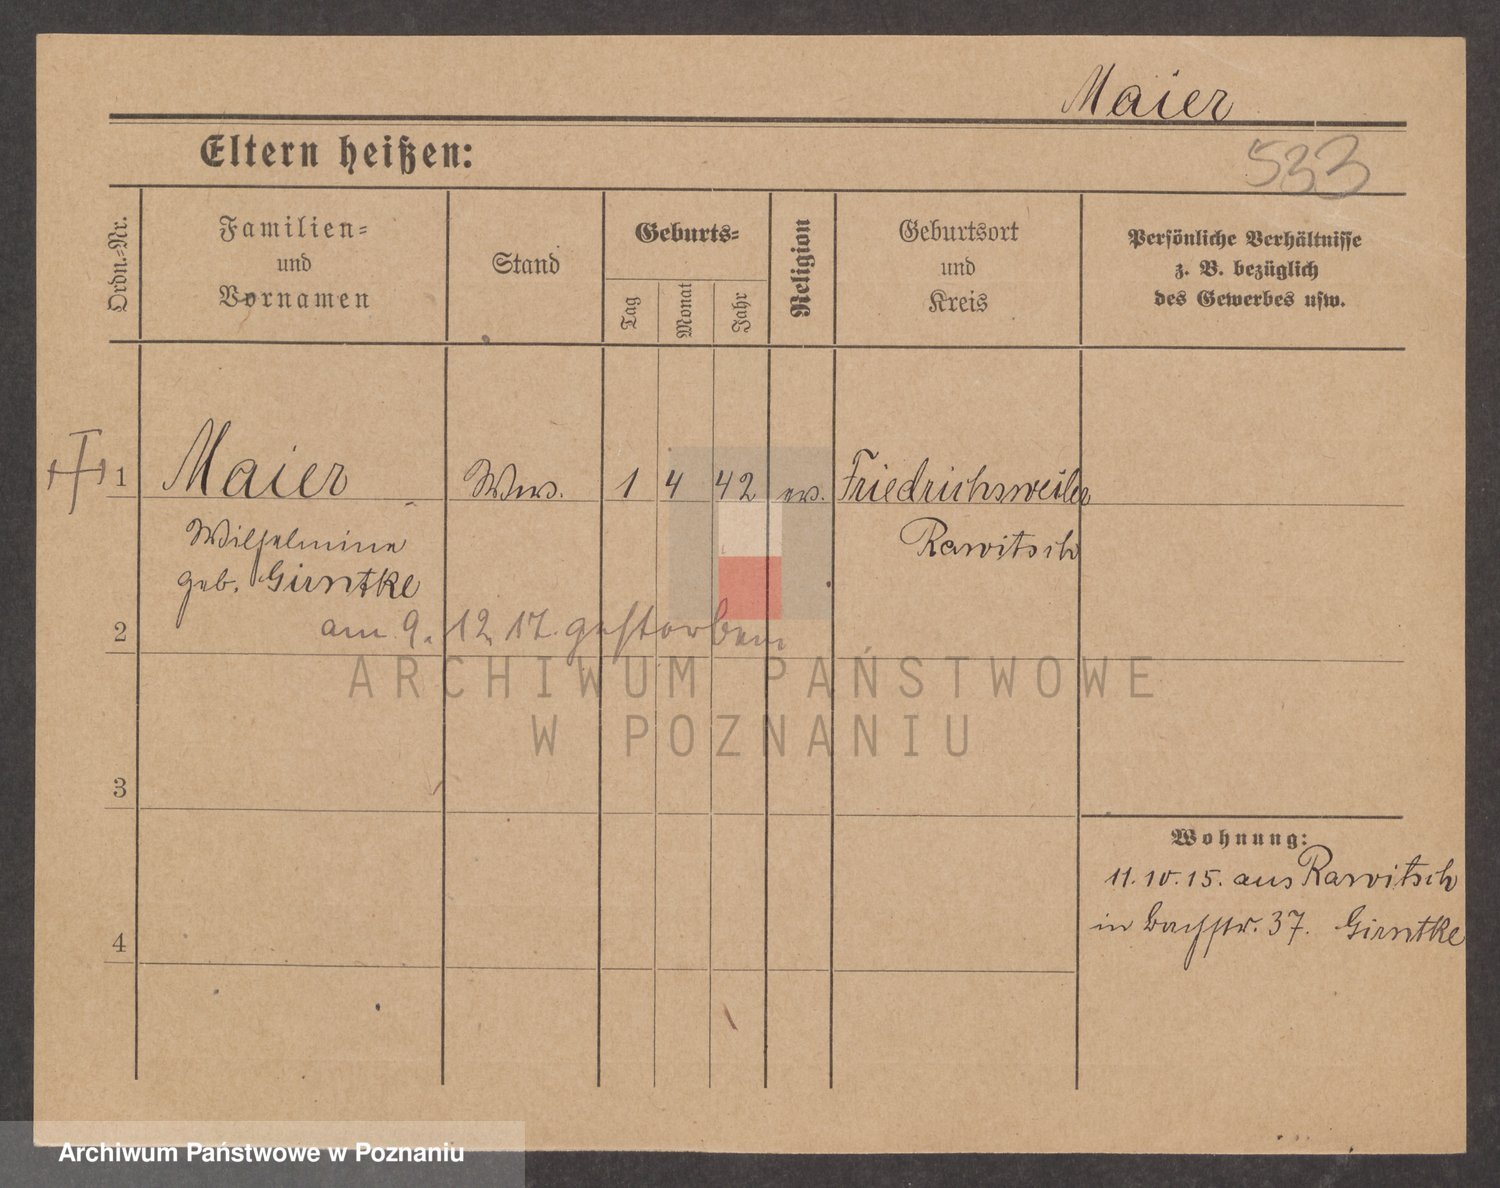 Maier
Eltern heißen:
533
Ordn.-Nr.
Familien-
und
Vornamen
Stand
Geburts-
Tag
Monat
Jahr
Religion
Geburtsort
und
Kreis
Persönliche Verhältnisse
z. B. bezüglich
des Gewerbes usw.
1 Maier Wwe. 1 4 42 ev. Friedrichsweiler
Wilhelmine Rawitsch
geb. Girntke
2 am 9. 12. 17. gestorben
ARCHIWUM PAŃSTWOWE
W POZNANIU
3
Wohnung:
11.10.15. aus Rawitsch
in Bachstr. 37. Girntke
4
Archiwum Państwowe w Poznaniu